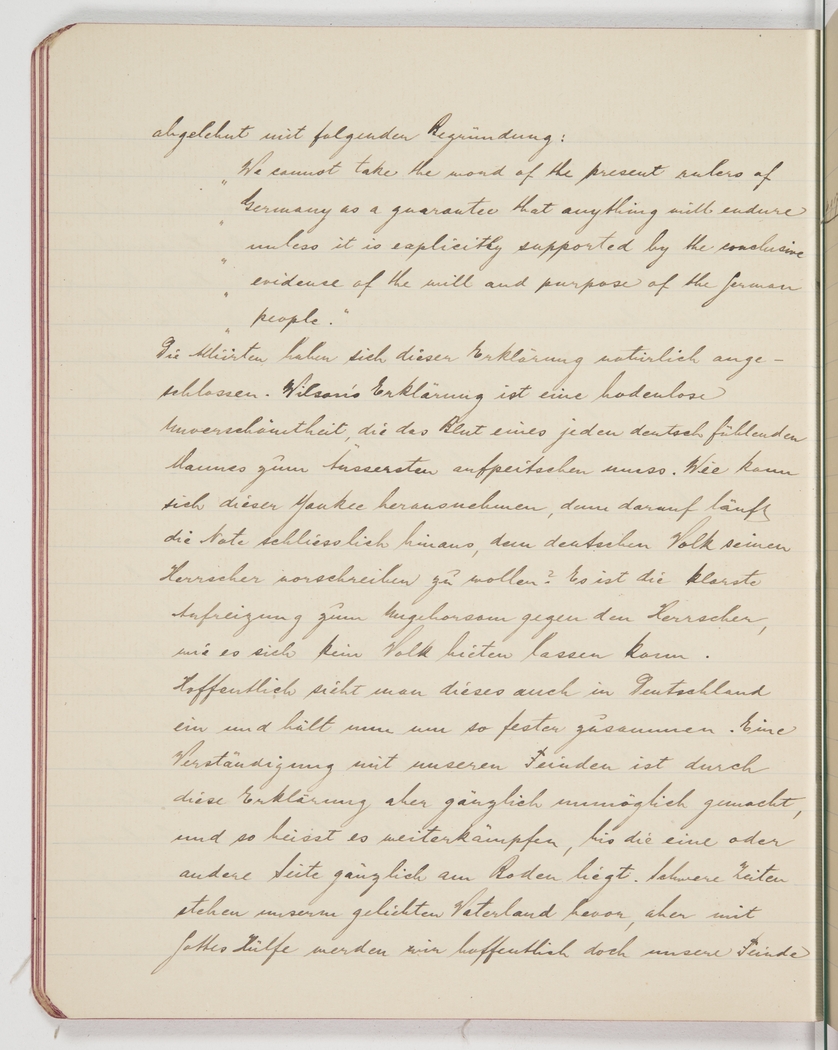 abgelehnt mit folgender Begründung:
„ We cannot take the word of the present rulers of
„ Germany as a guarantee that anything will endure
„ unless it is explicitly supported by the conclusive
„ evidence of the will and purpose of the German
„ people."
Die Alliirten haben sich dieser Erklärung natürlich ange-
schlossen. Wilson's Erklärung ist eine bodenlose
Unverschämtheit, die das Blut eines jeden deutsch fühlenden
Mannes zum Äussersten aufpeitschen muss. Wie kann
sich dieser Yankee herausnehmen, denn darauf läuft
die Note schliesslich hinaus, dem deutschen Volk seinen
Herrscher vorschreiben zu wollen? Es ist die klarste
Aufreizung zum Ungehorsam gegen den Herrscher,
wie es sich kein Volk bieten lassen kann.
Hoffentlich sieht man dieses auch in Deutschland
ein und hält nun um so fester zusammen. Eine
Verständigung mit unseren Feinden ist durch
diese Erklärung aber gänzlich unmöglich gemacht,
und so heisst es weiterkämpfen, bis die eine oder
andere Seite gänzlich am Boden liegt. Schwere Zeiten
stehen unserm geliebten Vaterland bevor, aber mit
Gottes Hülfe werden wir hoffentlich doch unsere Feinde